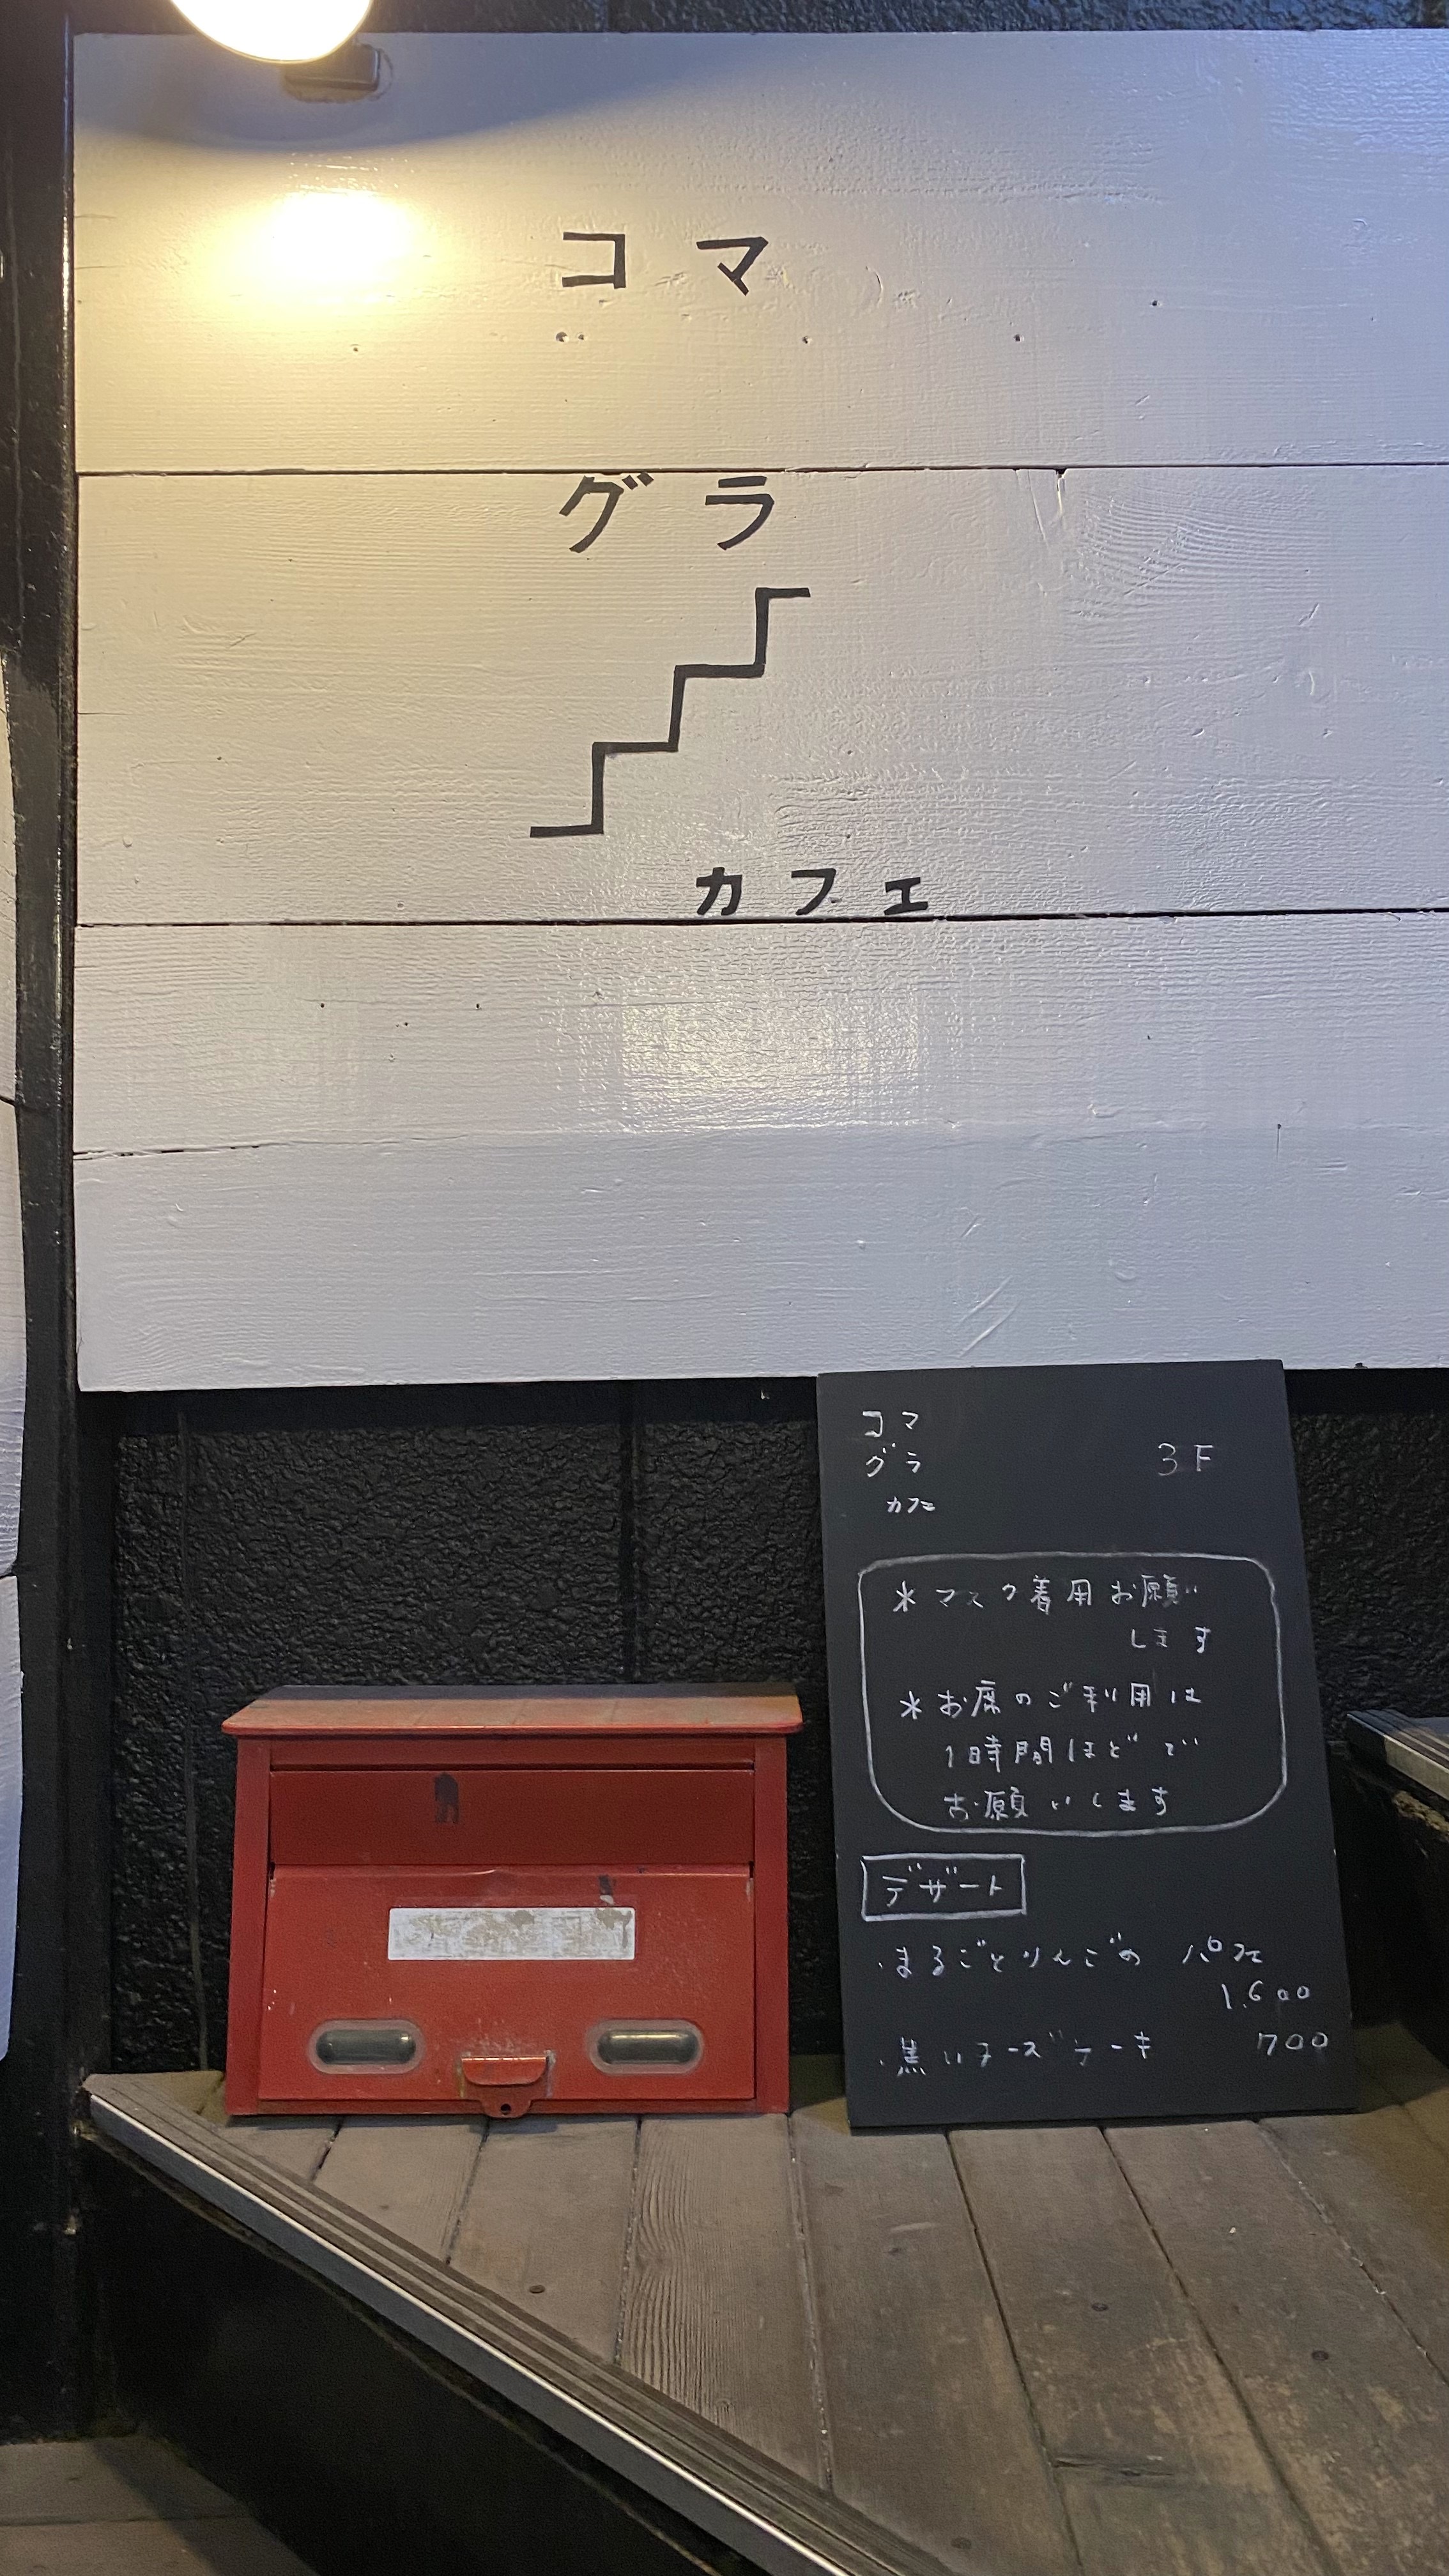 コマ
グラ
カフェ
コマ
グラ
カフェ
3F
＊マスク着用お願い
します
＊お席のご利用は
1時間ほどで
お願いします
デザート
・まるごとりんごの パフェ
1.600
・黒いチーズケーキ 700